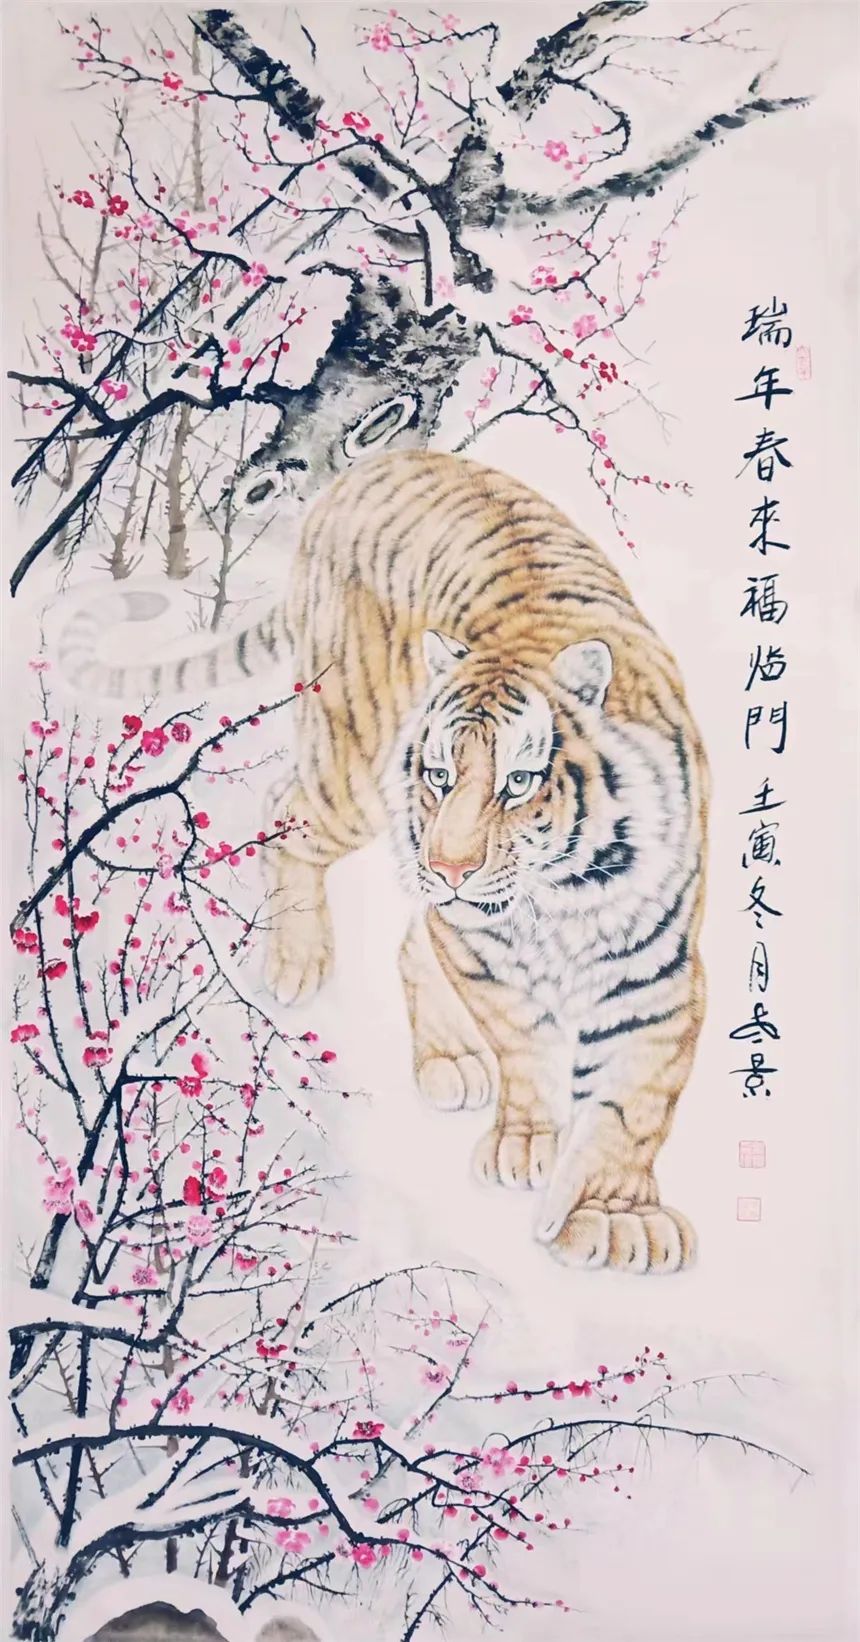 瑞年春來福临門 壬寅冬月 景